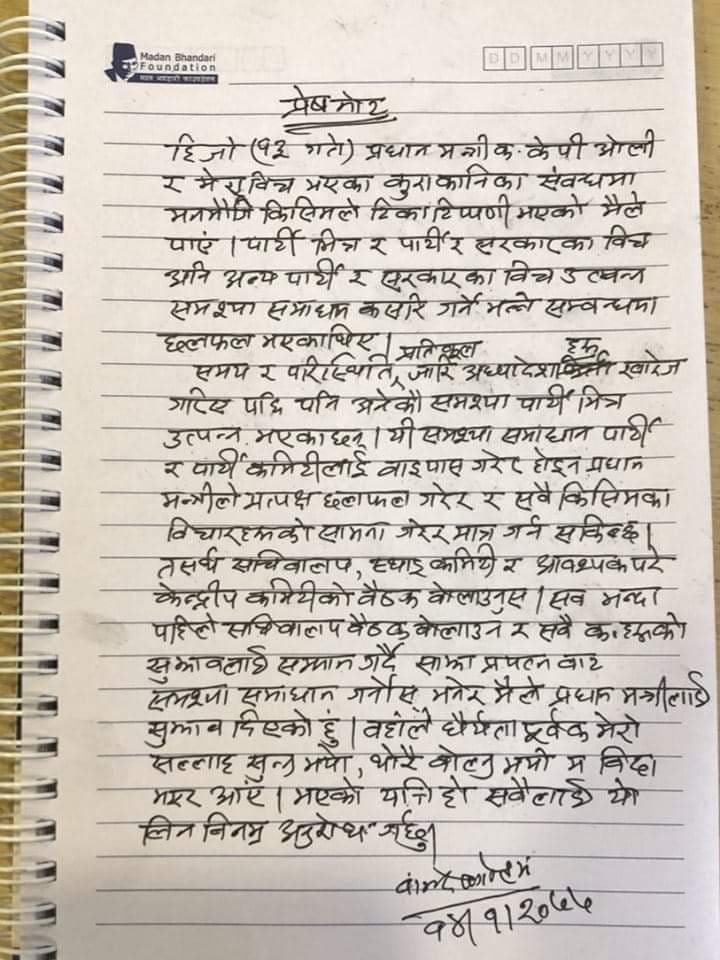 Madan Bhandari
Foundation
मदन भण्डारी फाउण्डेशन
D D M M Y Y Y Y
प्रेष नोट
हिजो (१३ गते) प्रधान मन्त्री क. केपी ओली
र मेरा विच भएका कुराकानिका संवन्धमा
मनमौजि किसिमले टिका टिप्पणी भएको मैले
पाएं । पार्टी भित्र र पार्टी र सरकारका विच
अनि अन्य पार्टी र सरकार का विच उत्पन्न
समश्या समाधान कसरि गर्ने भन्ने सम्वन्धमा
छलफल भएका थिए ।
समय र परिस्थिति प्रतिकूल जारि अध्यादेश हरू खारेज
गरिए पछि पनि अनेकौ समश्या पार्टी भित्र
उत्पन्न भएका छन् । यी समश्या समाधान पार्टी
र पार्टी कमिटीलाई वाइपास गरेर होइन प्रधान
मन्त्रीले प्रत्यक्ष छलफल गरेर र सवै किसिमका
विचारहरूको सामना गरेर मात्र गर्न सकिन्छ ।
तसर्थ सचिवालय, स्थाइ कमिटी र आवश्यक परे
केन्द्रीय कमिटीको वैठक वोलाउनुस । सव भन्दा
पहिले सचिवालय वैठक वोलाउन र सवै क. हरूको
सुझावलाई सम्मान गर्दै साझा प्रयत्न वाट
समश्या समाधान गर्नोस् भनेर मैले प्रधान मन्त्रीलाई
सुझाव दिएको हुं । वहांले धैर्यता पूर्वक मेरो
सल्लाह सुन्नु भयो, थोरै वोल्नु भयो म विदा
भएर आएं । भएको यत्ति हो सवैलाई यो
लिन विनम्र अनुरोध गर्छु ।
वामदेव गौतम
१४।१।२०७७